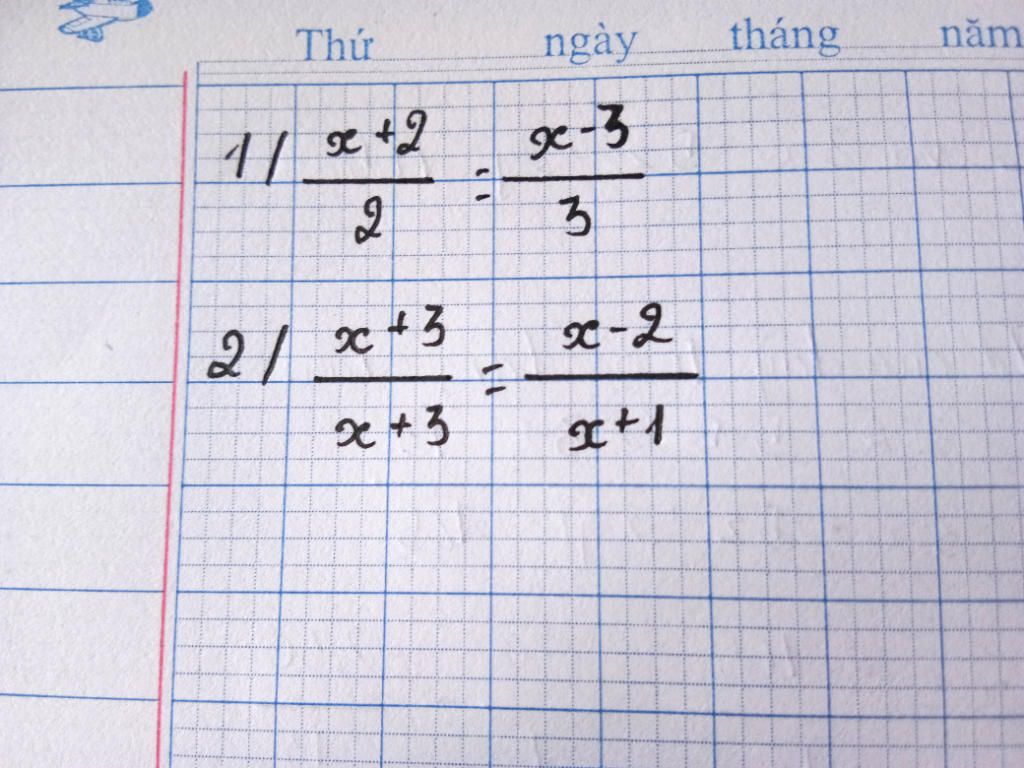 Thứ ngày tháng năm
1/ x+2 = x-3
2 3
2/ x+3 = x-2
x+3 x+1